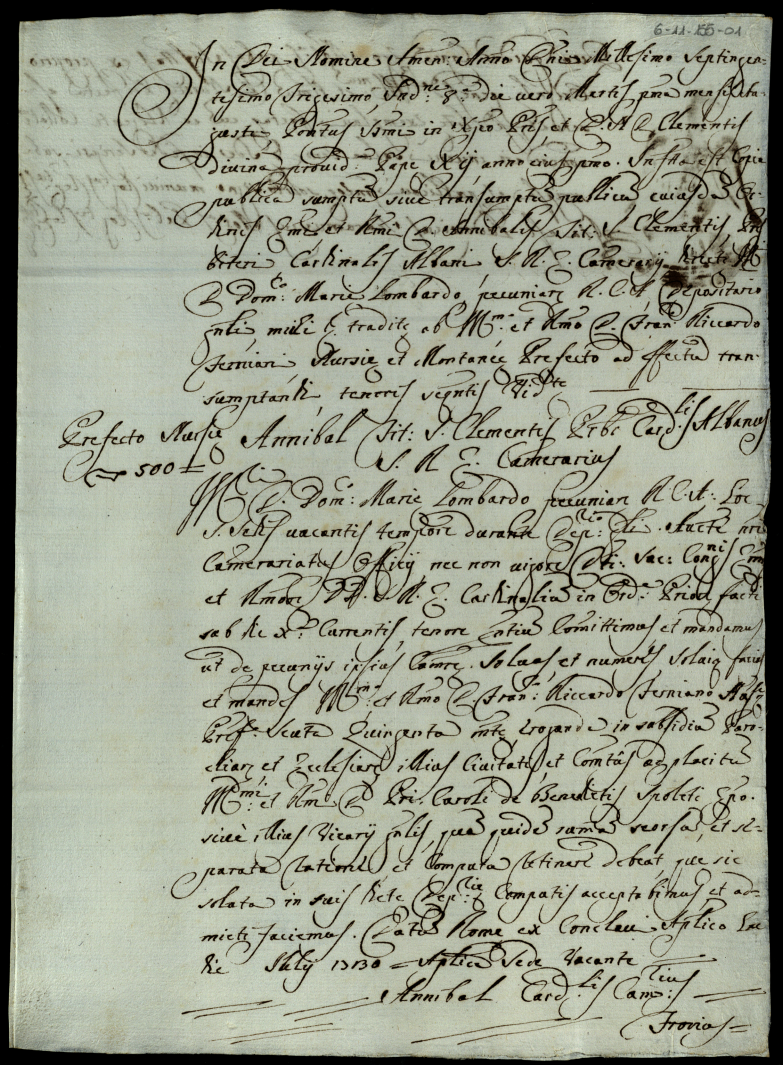 6-11-155-01
In Dei Nomine Amen: Anno Dni Millesimo Septingen-
tesimo Trigesimo, Indne: 8a: die vero Martis pma mensis Au-
gusti Pontus Ssmi in Xpo Pris et D. N. D. Clementis
divina provida: Pape XII anno eius pmo. Infrta est Copia
publica sumpti sive transumpti publici cuiusdā
Emi et Rmi D. Annibalis Tit: S. Clementis Prs
biteri Cardinalis Albani S. R. E. Camerarij
D. Domco: Marie Lombardo pecuniarū R. C. A. Depositario
Gnli mihi tradite ab Illmo: et Rmo D. Franco: Riccardo
Ferniani Nursie et Montanee Prefecto ad effectū tran-
sumptandi tenoris seqntis Videte
Prefecto Nursie
500 =
Annibal Tit: S. Clementis Prbr Cardlis Albanus
S. R. E. Camerarius
D. Domco: Marie Lombardo pecuniarū R. C. A: Loc
S. Sedis vacantis tempore durante Deprio: Gli. Aucte nri
Camerariatus Officij nec non vigore Dti: Sac: Congnis Emorū
et Rmorū DD. S. R. E. Cardinaliū in Ordne: Priorū facti
sub die xa: Currentis, tenore pntiū Comittimus et mandamus
ut de pecunijs ipsius Camre. Solvas, et numeres solviq facias
et mandes Illmo: et Rmo D. Franco: Riccardo Ferniano
Prefo: Scuta Quingenta mte eroganda in subsidiū Paro-
chiarū et Ecclesiarū illius Civitatis, et Comtūs ad placitū
Illmi: et Rmi D. Pri. Caroli de Benedictis Spoleti Epo.
sive illius Vicarij Gnlis quā quidē summā seorsū, et se-
parata ratione, et Computa retinere debeāt, que sic
soluta in suis Dicte Deprie: Computis acceptabimus et ad-
mitti faciemus. Datū Rome ex Conclavi Aplico hac
die Julij 1730 = Aplica Sede Vacante
Annibal Cardlis Camrius
Frovias =